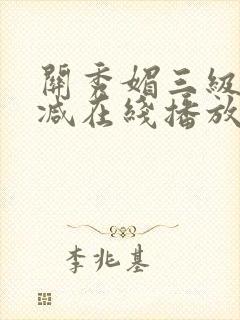 關秀媚三級
减在綫播放
李兆基